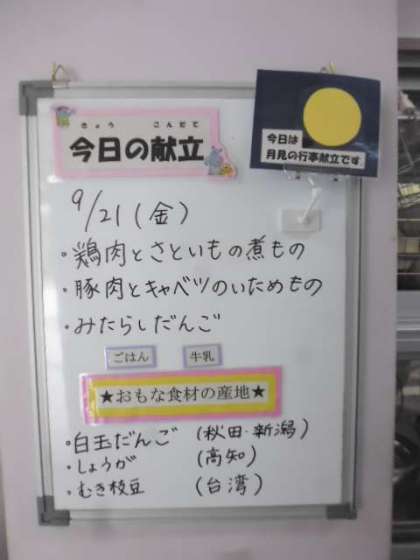 きょう こんだて
今日の献立
今日は
月見の行事献立です
9/21(金)
・鶏肉とさといもの煮もの
・豚肉とキャベツのいためもの
・みたらしだんご
ごはん 牛乳
★おもな食材の産地★
・白玉だんご (秋田・新潟)
・しょうが (高知)
・むき枝豆 (台湾)